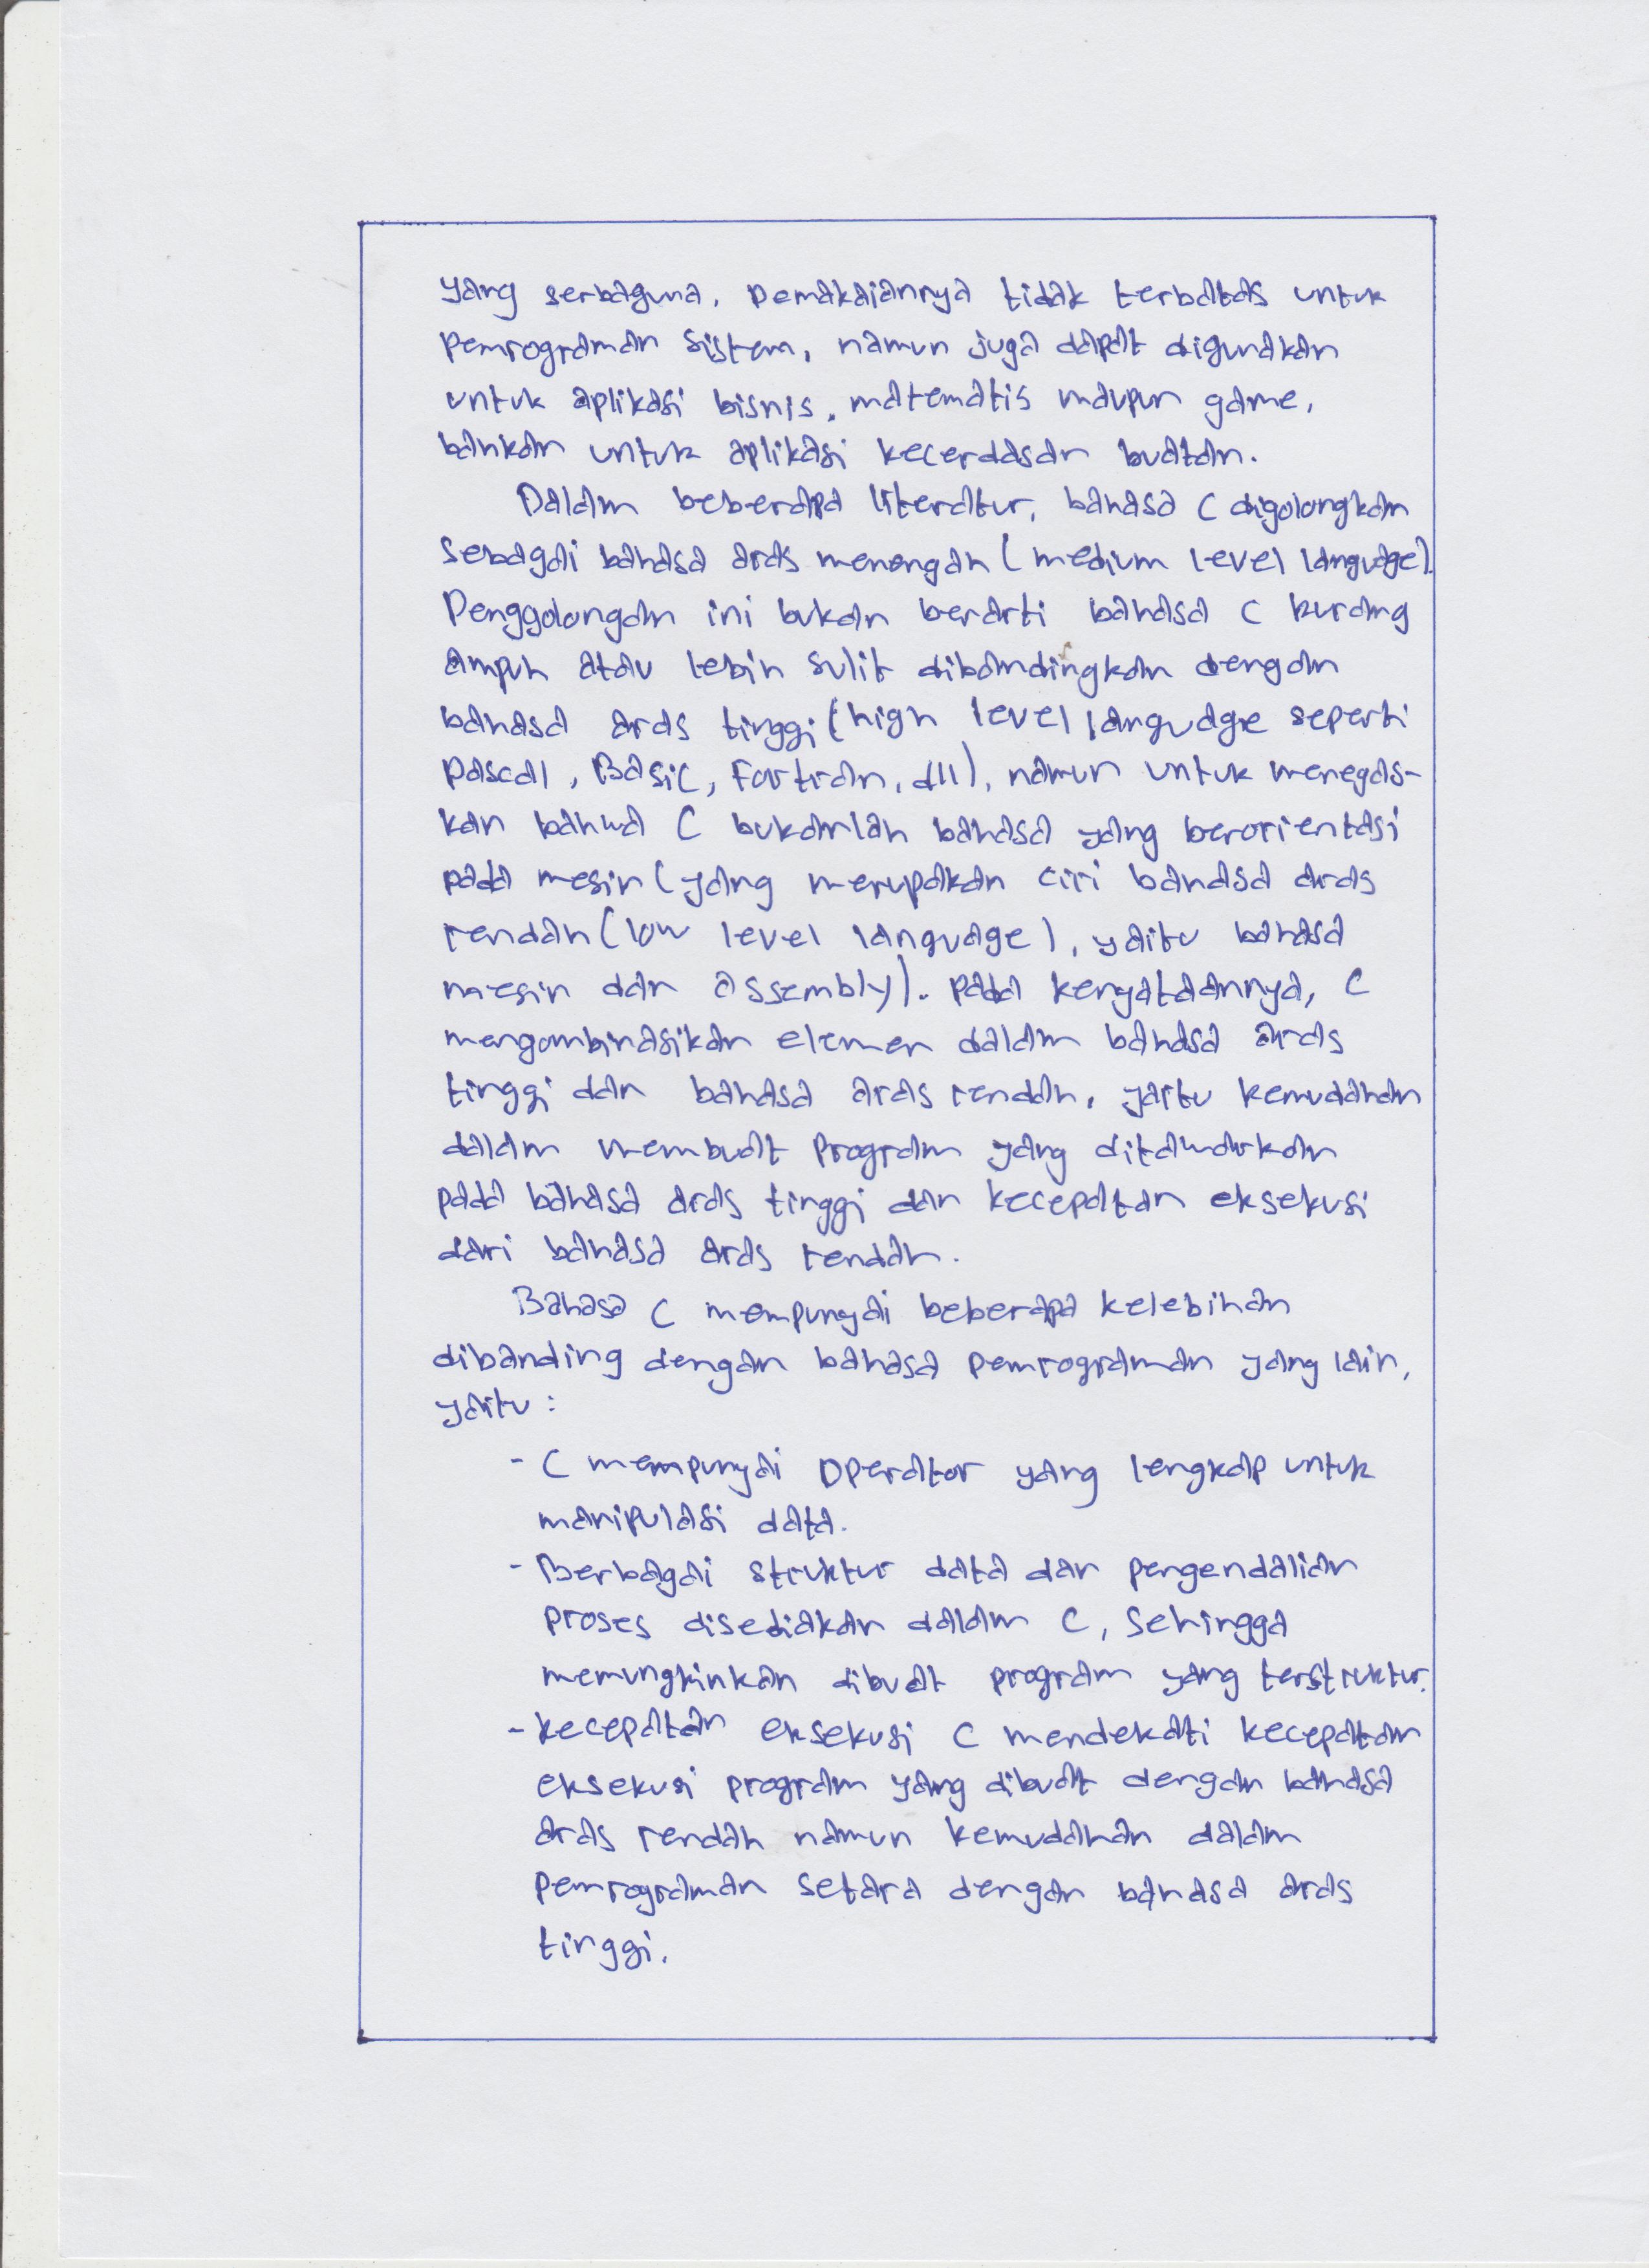 yang serbaguna, pemakaiannya tidak terbatas untuk
pemrograman sistem, namun juga dapat digunakan
untuk aplikasi bisnis, matematis maupun game,
bahkan untuk aplikasi kecerdasan buatan.
Dalam beberapa literatur, bahasa C digolongkan
sebagai bahasa aras menengah (medium level language).
Penggolongan ini bukan berarti bahasa C kurang
ampuh atau lebih sulit dibandingkan dengan
bahasa aras tinggi (high level language seperti
Pascal, Basic, Fortran, dll), namun untuk menegas-
kan bahwa C bukanlah bahasa yang berorientasi
pada mesin (yang merupakan ciri bahasa aras
rendah (low level language), yaitu bahasa
mesin dan assembly). Pada kenyataannya, C
mengombinasikan elemen dalam bahasa aras
tinggi dan bahasa aras rendah, yaitu kemudahan
dalam membuat program yang ditawarkan
pada bahasa aras tinggi dan kecepatan eksekusi
dari bahasa aras rendah.
Bahasa C mempunyai beberapa kelebihan
dibanding dengan bahasa pemrograman yang lain,
yaitu :
- C mempunyai operator yang lengkap untuk
manipulasi data.
- Berbagai struktur data dan pengendalian
proses disediakan dalam C, sehingga
memungkinkan dibuat program yang terstruktur.
- kecepatan eksekusi C mendekati kecepatan
eksekusi program yang dibuat dengan bahasa
aras rendah namun kemudahan dalam
pemrograman setara dengan bahasa aras
tinggi.